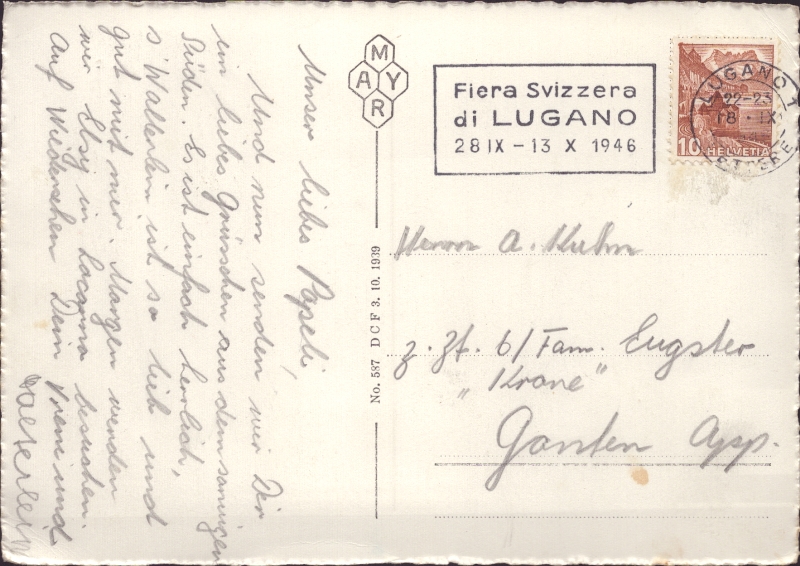 Unser liebes Papeli,
Und nun senden wir Dir
ein liebes Grüsschen aus dem sonnigen
Süden. Es ist einfach herrlich,
s'Walterlein ist so lieb und
gut mit mir. Morgen werden
wir Elsy in Locarno besuchen.
Auf Wiedersehen Dein und
Walterlein
MAYR
No. 587 DCF 3. 10. 1939
Fiera Svizzera
di LUGANO
28 IX – 13 X 1946
LUGANO 1
22-23
18 · IX
LETTERE
10 HELVETIA
Herrn A. Kuhn
z. Zt. b/Fam. Eugster
„Krone"
Gonten App.